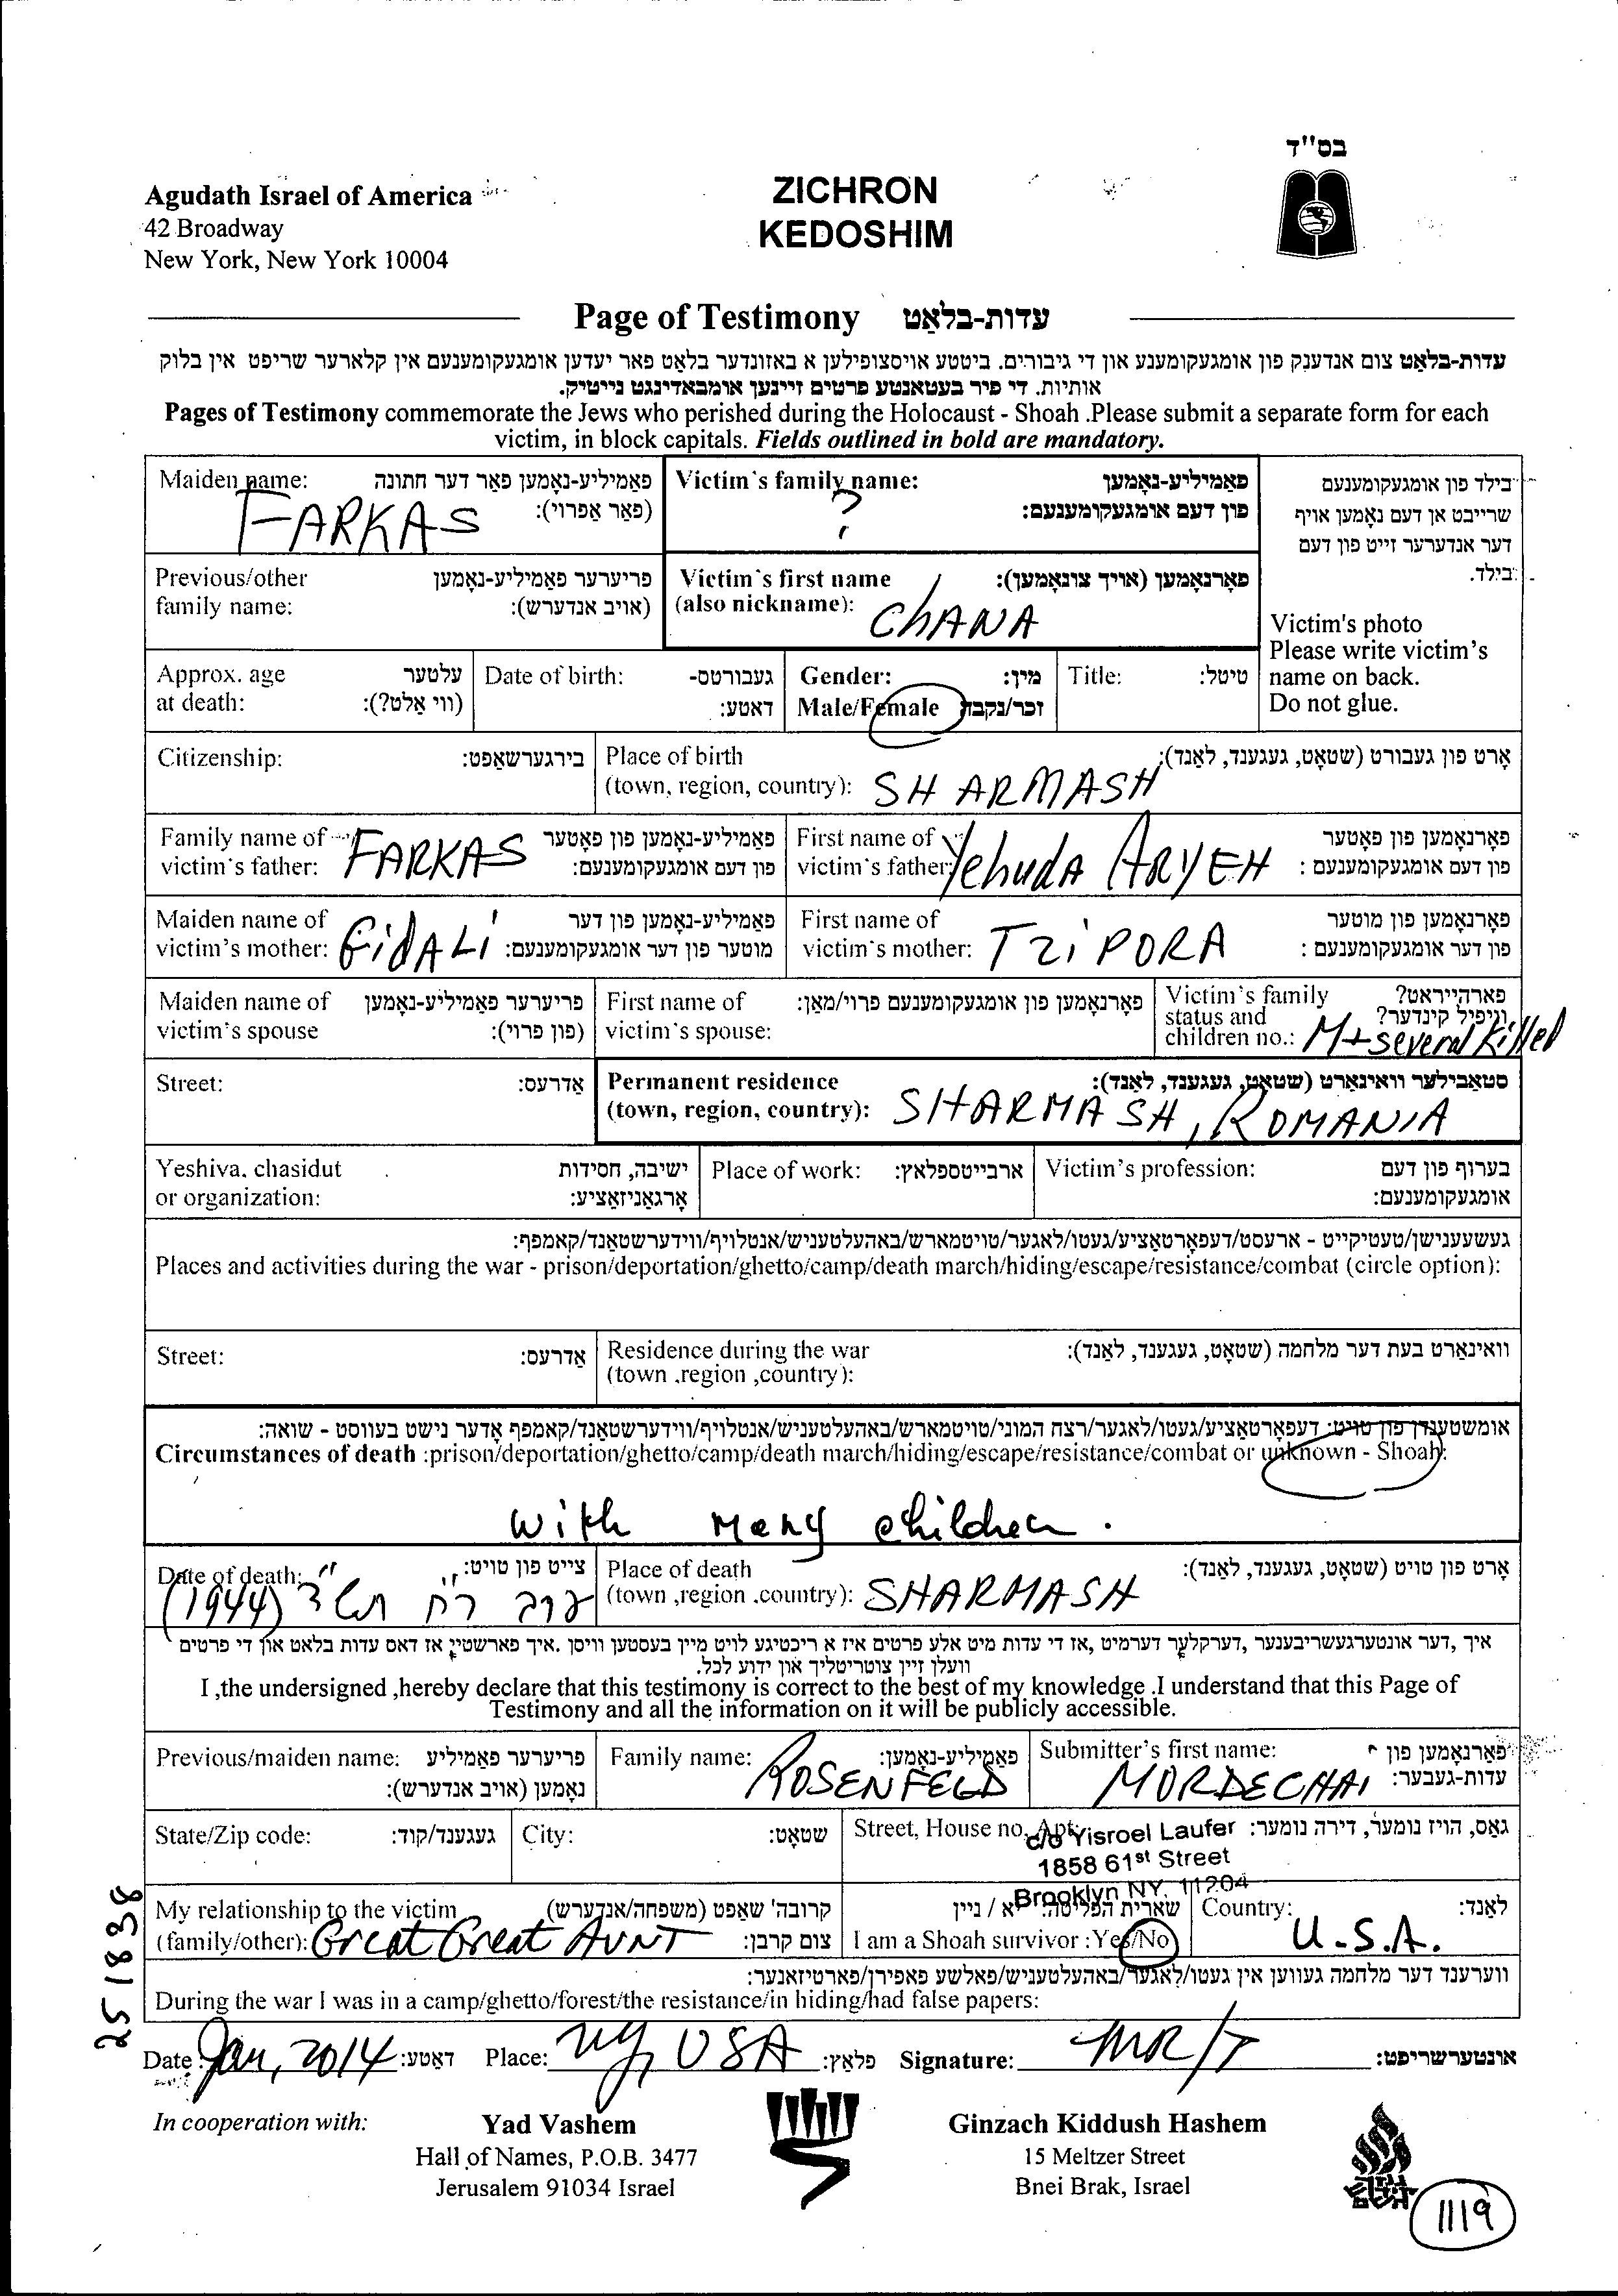 בס"ד
Agudath Israel of America
42 Broadway
New York, New York 10004
ZICHRON
KEDOSHIM
Page of Testimony עדות-בלאַט
עדות-בלאַט צום אנדענק פון אומגעקומענע און די גיבורים. ביטע אויסצופילען א באזונדער בלאַט פאר יעדען אומגעקומענעם אין קלארער שריפט אין בלוק
אותיות. די פיר בעטאנטע פרטים זיינען אומבאדינגט נייטיק.
Pages of Testimony commemorate the Jews who perished during the Holocaust - Shoah .Please submit a separate form for each
victim, in block capitals. Fields outlined in bold are mandatory.
Maiden name: פאַמיליע-נאָמען פאַר דער חתונה
(פאַר אַפרוי):
FARKAS
Victim's family name: פאַמיליע-נאָמען
פון דעם אומגעקומענעם:
?
בילד פון אומגעקומענעם
שרייבט אן דעם נאָמען אויף
דער אנדערער זייט פון דעם
בילד.
Victim's photo
Please write victim's
name on back.
Do not glue.
Previous/other פריערער פאַמיליע-נאָמען
family name: (אויב אנדערש):
Victim's first name פאָרנאָמען (אויך צונאָמען):
(also nickname):
ChANA
Approx. age עלטער
at death: (ווי אַלט?):
Date of birth: געבורטס-
דאַטע:
Gender: מין:
Male/Female זכר/נקבה
Title: טיטל:
Citizenship: בירגערשאַפט:
Place of birth אָרט פון געבורט (שטאָט, געגענד, לאַנד):
(town, region, country): SHARMASH
Family name of פאַמיליע-נאָמען פון פאָטער
victim's father: פון דעם אומגעקומענעם:
FARKAS
First name of פאָרנאָמען פון פאָטער
victim's father: פון דעם אומגעקומענעם :
Yehuda ARYEH
Maiden name of פאַמיליע-נאָמען פון דער
victim's mother: מוטער פון דער אומגעקומענעם:
GidALi
First name of פאָרנאָמען פון מוטער
victim's mother: פון דער אומגעקומענעם :
TZiPORA
Maiden name of פריערער פאַמיליע-נאָמען
victim's spouse (פון פרוי):
First name of פאָרנאָמען פון אומגעקומענעם פרוי/מאַן:
victim's spouse:
Victim's family פארהייראט?
status and וויפיל קינדער?
children no.: M+several killed
Street: אַדרעס:
Permanent residence סטאַבילער וואוינאָרט (שטאָט, געגענד, לאַנד):
(town, region, country): SHARMASH, ROMANIA
Yeshiva, chasidut ישיבה, חסידות
or organization: אָרגאַניזאַציע:
Place of work: ארבייטספלאַץ:
Victim's profession: בערוף פון דעם
אומגעקומענעם:
געשעענישן/טעטיקייט - ארעסט/דעפאָרטאַציע/געטו/לאגער/טויטמארש/באהעלטעניש/אנטלויף/ווידערשטאַנד/קאמפף:
Places and activities during the war - prison/deportation/ghetto/camp/death march/hiding/escape/resistance/combat (circle option):
Street: אַדרעס:
Residence during the war וואוינאָרט בעת דער מלחמה (שטאָט, געגענד, לאַנד):
(town ,region ,country):
אומשטענדן פון טויט: דעפאָרטאַציע/געטו/לאגער/רצח המוני/טויטמארש/באהעלטעניש/אנטלויף/ווידערשטאַנד/קאמפף אָדער נישט בעוואוסט - שואה:
Circumstances of death :prison/deportation/ghetto/camp/death march/hiding/escape/resistance/combat or unknown - Shoah:
with many children .
Date of death: צייט פון טויט:
ערב ר"ח תש"ד (1944)
Place of death אָרט פון טויט (שטאָט, געגענד, לאַנד):
(town ,region ,country): SHARMASH
איך ,דער אונטערגעשריבענער ,דערקלער דערמיט ,אז די עדות מיט אלע פרטים איז א ריכטיגע לויט מיין בעסטען וויסן .איך פארשטיי אז דאס עדות בלאט און די פרטים
וועלן זיין צוטריטליך און ידוע לכל.
I ,the undersigned ,hereby declare that this testimony is correct to the best of my knowledge .I understand that this Page of
Testimony and all the information on it will be publicly accessible.
Previous/maiden name: פריערער פאַמיליע
נאָמען (אויב אנדערש):
Family name: פאַמיליע-נאָמען:
ROSENFELD
Submitter's first name: פאָרנאָמען פון
עדות-געבער:
MORDECHAI
State/Zip code: געגענד/קוד:
City: שטאָט:
Street, House no. Apt: גאַס, הויז נומער, דירה נומער:
c/o Yisroel Laufer
1858 61st Street
Brooklyn NY. 11204
My relationship to the victim קרובה'שאַפט (משפחה/אנדערש)
(family/other): צום קרבן:
Great Great AUNT
שארית הפליטה: יא / ניין
I am a Shoah survivor :Yes/No
Country: לאַנד:
U.S.A.
ווערענד דער מלחמה געווען אין געטו/לאגער/באהעלטעניש/פאלשע פאפירן/פארטיזאנער:
During the war I was in a camp/ghetto/forest/the resistance/in hiding/had false papers:
251838
Date: Jan, 2014 דאַטע: Place: NY, USA פלאַץ: Signature: אונטערשריפט:
In cooperation with:
Yad Vashem
Hall of Names, P.O.B. 3477
Jerusalem 91034 Israel
Ginzach Kiddush Hashem
15 Meltzer Street
Bnei Brak, Israel
1119